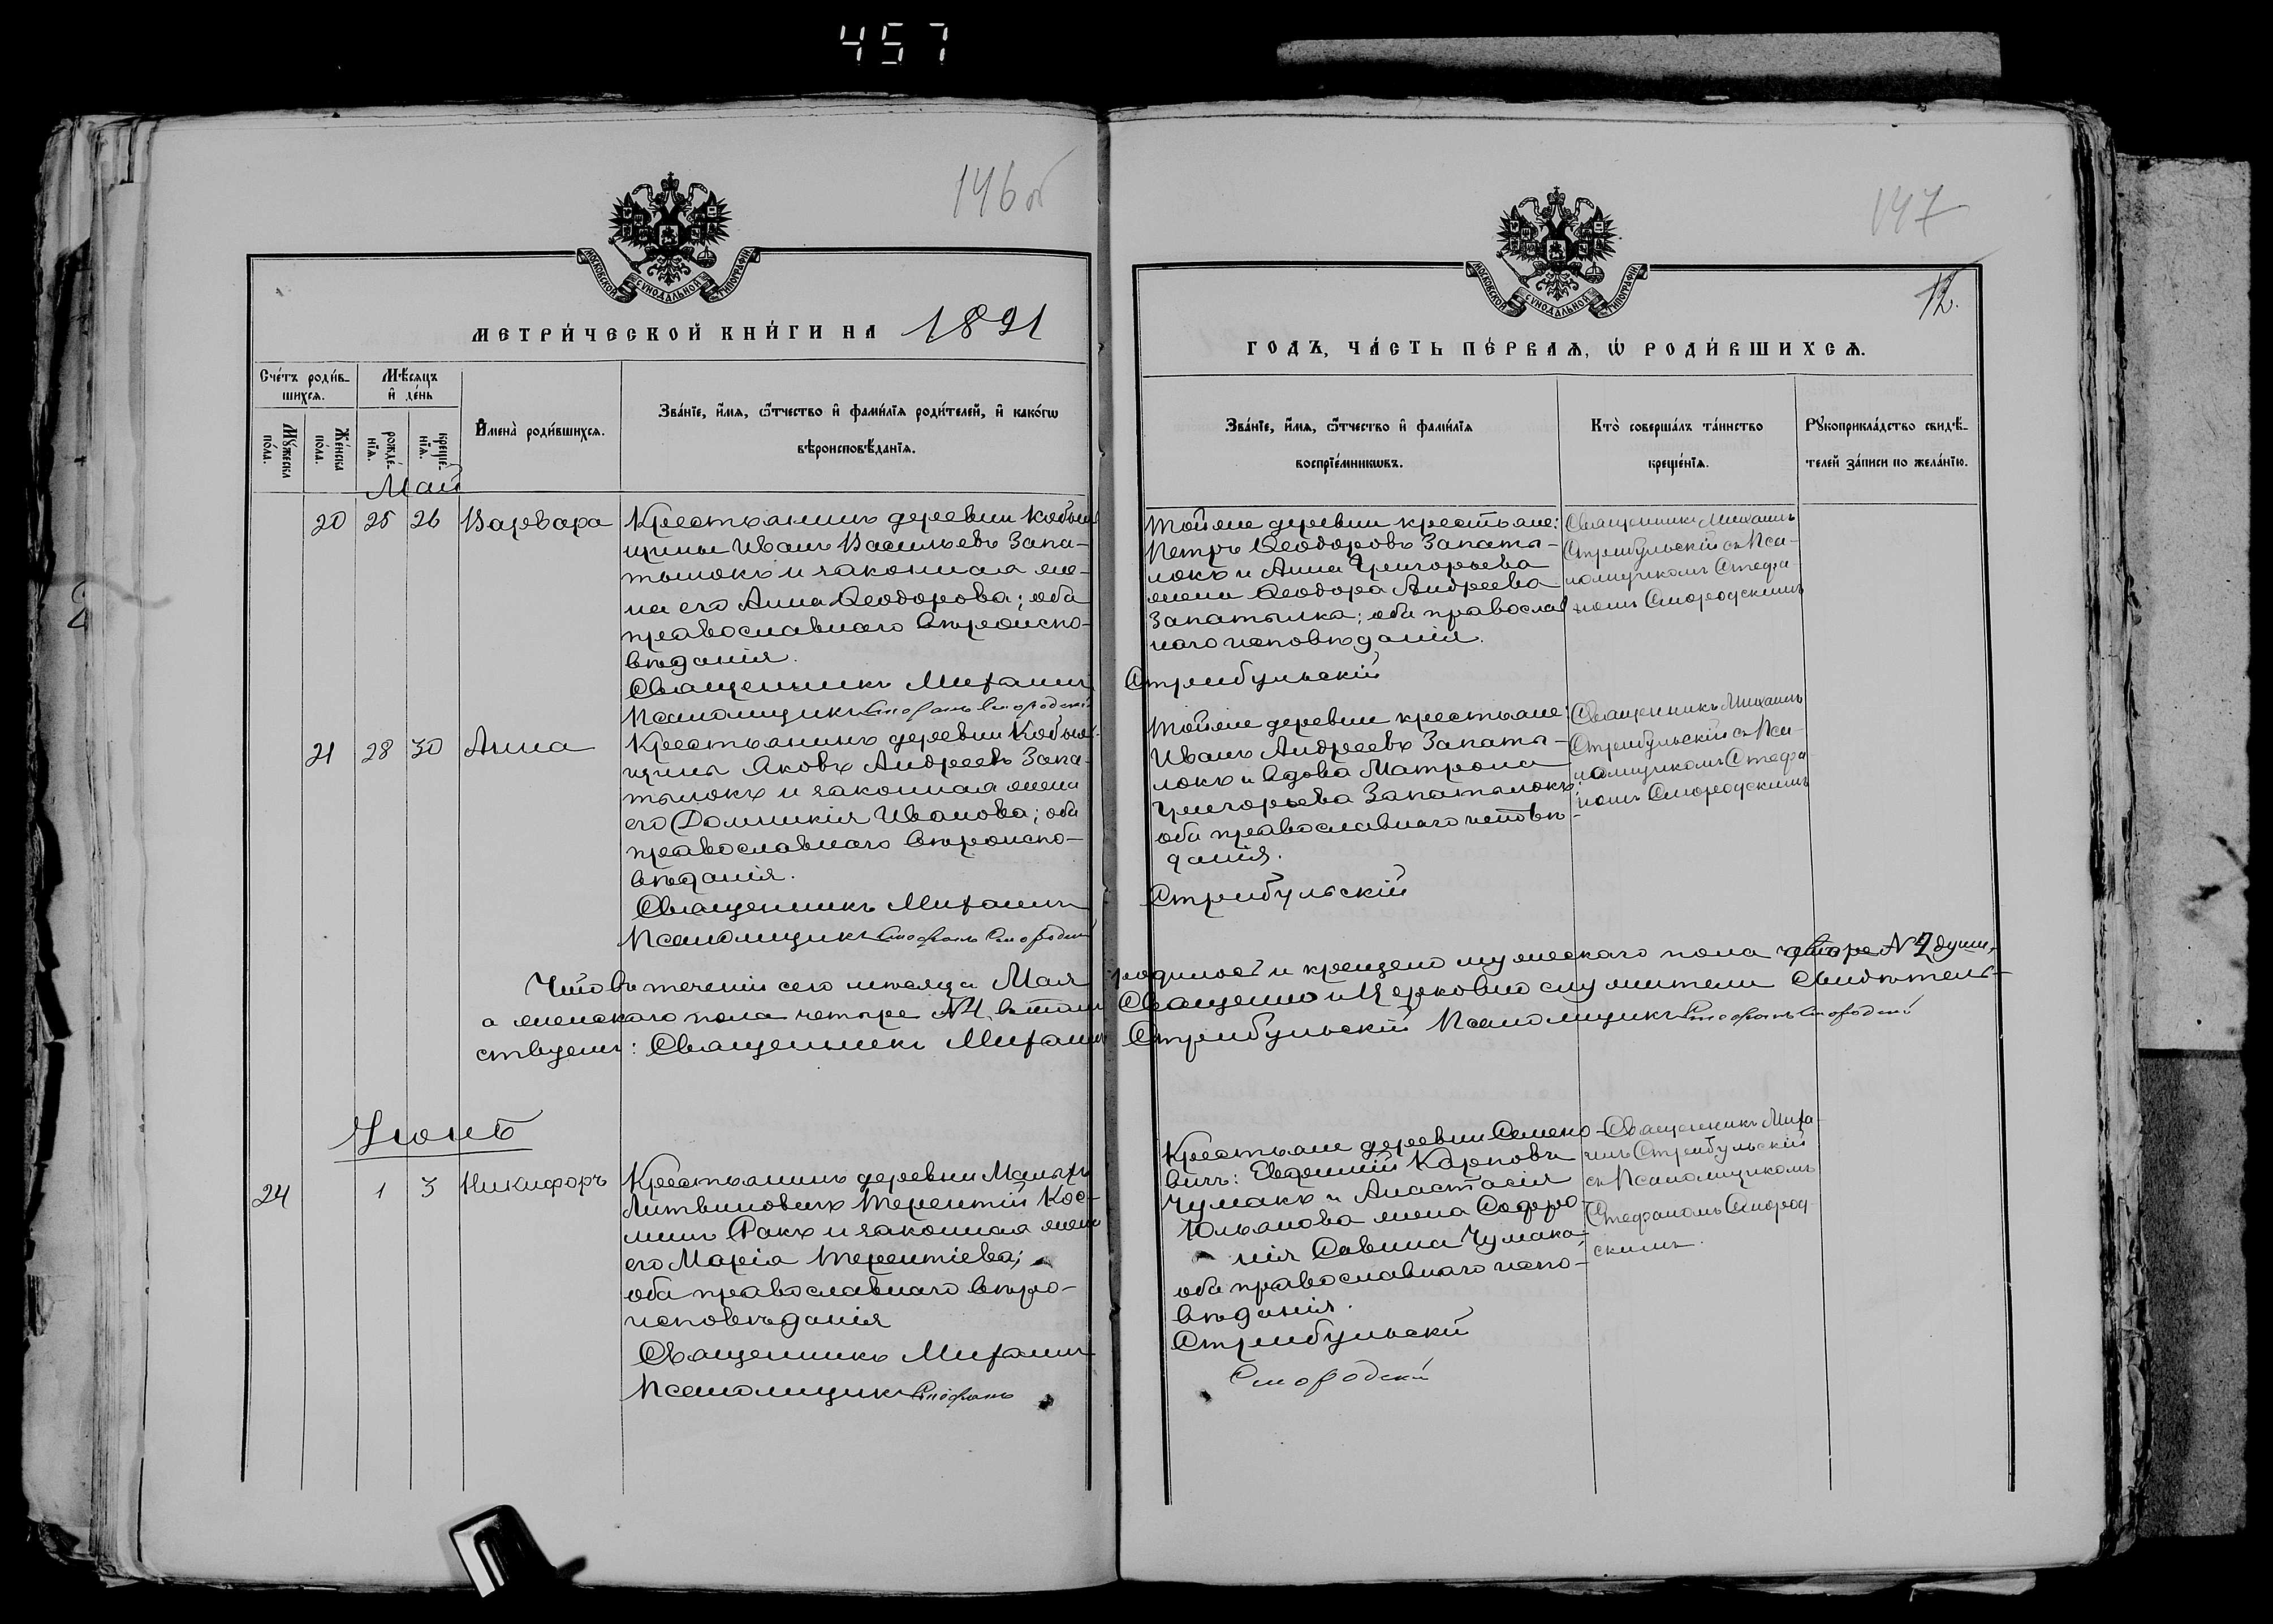 457
146об
147
12.
МОСКОВСКОЙ СѴНОДАЛЬНОЙ ТИПОГРАФІИ.
МОСКОВСКОЙ СѴНОДАЛЬНОЙ ТИПОГРАФІИ.
МЕТРИ́ЧЕСКОЙ КНИ́ГИ НА 1891
ГОДЪ, ЧА́СТЬ ПЕ́РВАѦ, Ѡ҆ РОДИ́ВШИХСѦ.
Сче́тъ роди́в-
шихсѧ.
Мѣ́сѧцъ
и҆ де́нь
Мꙋ́жеска
по́ла.
Же́нска
по́ла.
рожде́-
нїѧ.
креще́-
нїѧ.
И҆мена̀ роди́вшихсѧ.
Зва́нїе, и҆́мѧ, ѻ҆́тчество и҆ фами́лїѧ роди́телей, и҆ како́гѡ
вѣроисповѣ́данїѧ.
Зва́нїе, и҆́мѧ, ѻ҆́тчество и҆ фами́лїѧ
воспрїе́мникѡвъ.
Кто̀ соверша́лъ та́инство
креще́нїѧ.
Рꙋкоприкла́дство свидѣ́-
телей за́писи по жела́нїю.
Май
20 25 26 Варвара
Крестьянинъ деревни Кобыль-
щины Иванъ Васильевъ Запа-
тылокъ и законная же-
на его Анна Ѳеодорова; оба
православнаго вѣроиспо-
вѣданія.
Священникъ Михаилъ
Псаломщикъ Стефанъ Смородскій
Тойже деревни крестьяне:
Петръ Ѳеодоровъ Запаты-
локъ и Анна Григорьева
жена Ѳеодора Андреева
Запатылка; оба православ
наго исповѣданія.
Стрибульскій
Священникъ Михаилъ
Стрибульскій съ Пса-
ломщикомъ Стефа-
номъ Смородскимъ
21 28 30 Анна
Крестьянинъ деревни Кобыль-
щины Яковъ Андреевъ Запа-
тылокъ и законная жена
его Домникія Иванова; оба
православнаго вѣроиспо-
вѣданія.
Священникъ Михаилъ
Псаломщикъ Стефанъ Смородскій
Тойже деревни крестьяне:
Иванъ Андреевъ Запаты-
локъ и вдова Матрона
Григорьева Запатылокъ;
оба православнаго исповѣ-
данія.
Стрибульскій
Священникъ Михаилъ
Стрибульскій съ Пса-
ломщикомъ Стефа
номъ Смородскимъ
Что въ теченіи сего мѣсяца Мая родилось и крещено мужескаго пола четыре №4 души,
а женскаго пола четыре №4, въ томъ Священно и Церковно служители свидѣтель-
ствуемъ: Священникъ Михаилъ Стрибульскій Псаломщикъ Стефанъ Смородскій
Іюнь
24 1 3 Никифоръ
Крестьянинъ деревни Малыхъ
Литвиновичъ Терентій Кос-
минъ Ракъ и законная жена
его Марія Терентіева;
оба православнаго вѣро-
исповѣданія
Священникъ Михаилъ
Псаломщикъ Стефанъ
Крестьяне деревни Семено-
вичъ: Евдокимій Карповъ
Чумакъ и Анастасія
Юльянова жена Софро-
нія Савина Чумака;
оба православнаго испо-
вѣданія.
Стрибульскій
Смородскій
Священникъ Миха-
илъ Стрибульскій
съ Псаломщикомъ
Стефаномъ Смород-
скимъ.